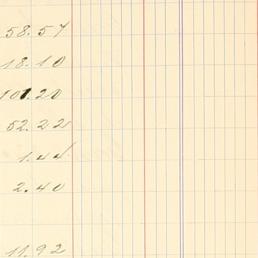 58.57
18.10
101.20
52.22
1.44
2.40
11.92